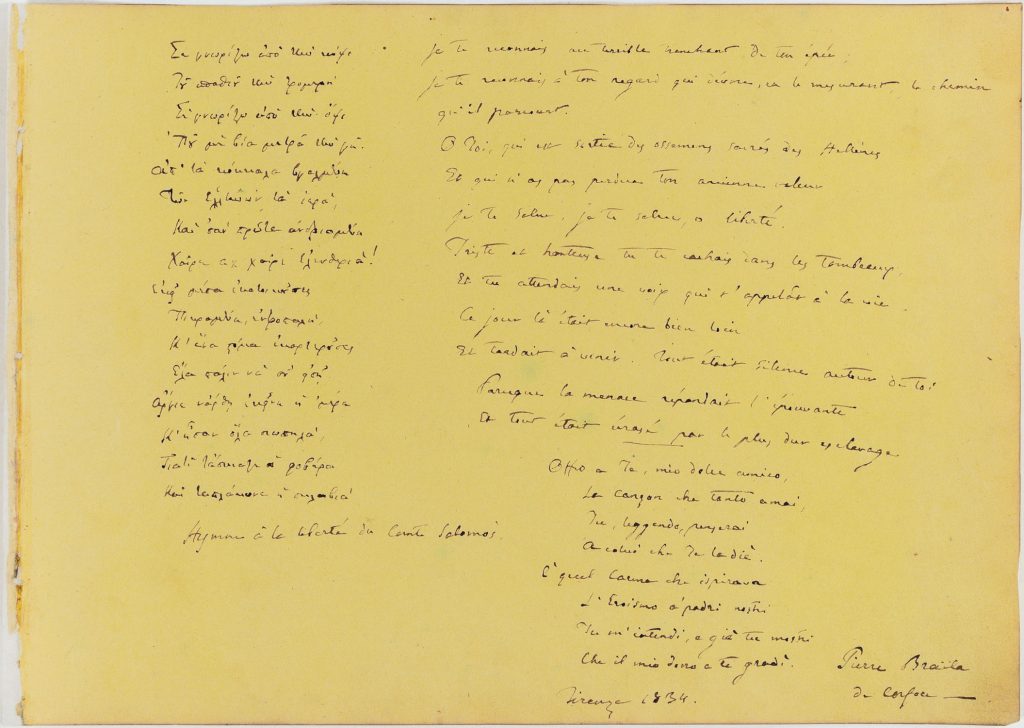 Σε γνωρίζω από την κόψι
Τοῦ σπαθιοῦ την τρομερή
Σε γνωρίζω από την όψι
Ποῦ με βία μετρά την γή.
Απ' τα κόκκαλα βγαλμένη
Των Ελλήνων τα ιερά,
Και σαν πρώτα ανδρειωμένη
Χαίρε αχ χαίρε Ελευθεριά!
Εκεί μέσα εκατοικούσες
Πικραμένη, εντροπαλή
Κ' ένα στόμα εκαρτερούσες
Έλα πάλιν να σοῦ ειπή.
Άργειε νάρθη εκείνη η μέρα
Κ' ήσαν όλα σιωπηλά,
Γιατί τάσκιαζε η φοβέρα
Και ταπλάκονε η σκλαβιά
Hymne à la liberté du Comte Salomòs.
je te reconnais au terrible tranchant de ton épée;
je te reconnais à ton regard qui dévore, en le mesurant le chemin
qu'il parcourt.
O Toi, qui est sortie des ossemens sacrés des Hellènes
Et qui n'as pas perdue ton ancienne valeur
je te salue, je te salue, o liberté.
Triste et honteuse tu te cachais dans les tombeaux,
Et tu attendais une voix qui t'appelât à la vie
Ce jour là était encore bien loin
Et tardait à venir. Tout était silence autour de toi
Parceque la menace répandait l'épouvante
Et tout était écrasé par le plus dur esclavage
Offro a Te, mio dolce amico,
La canzon che tanto amai,
Tu, leggendo, penserai
A colui che Te la diè.
È quell carme che ispirava
L'Eroismo a' padri nostri
Tu m'intendi, e già tu mostri
Che il mio dono a te gradì.
Firenze 1834.
Pierre Braila
de Corfou